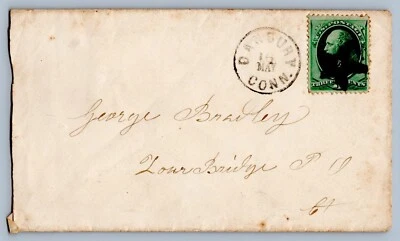 DANBURY
MAY
CONN.
U.S. POSTAGE
THREE CENTS
George Bradley
Bridge P O
Ct